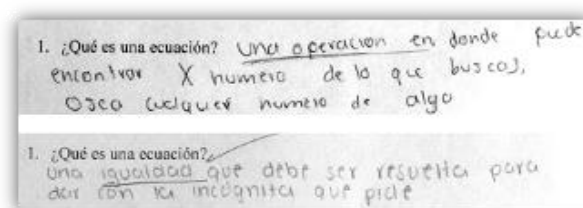 1. ¿Qué es una ecuación? Una operacion en donde puede
encontrar X numero de lo que buscas,
osea cualquier numero de algo
1. ¿Qué es una ecuación?
Una igualdad que debe ser resuelta para
dar con la incognita que pide